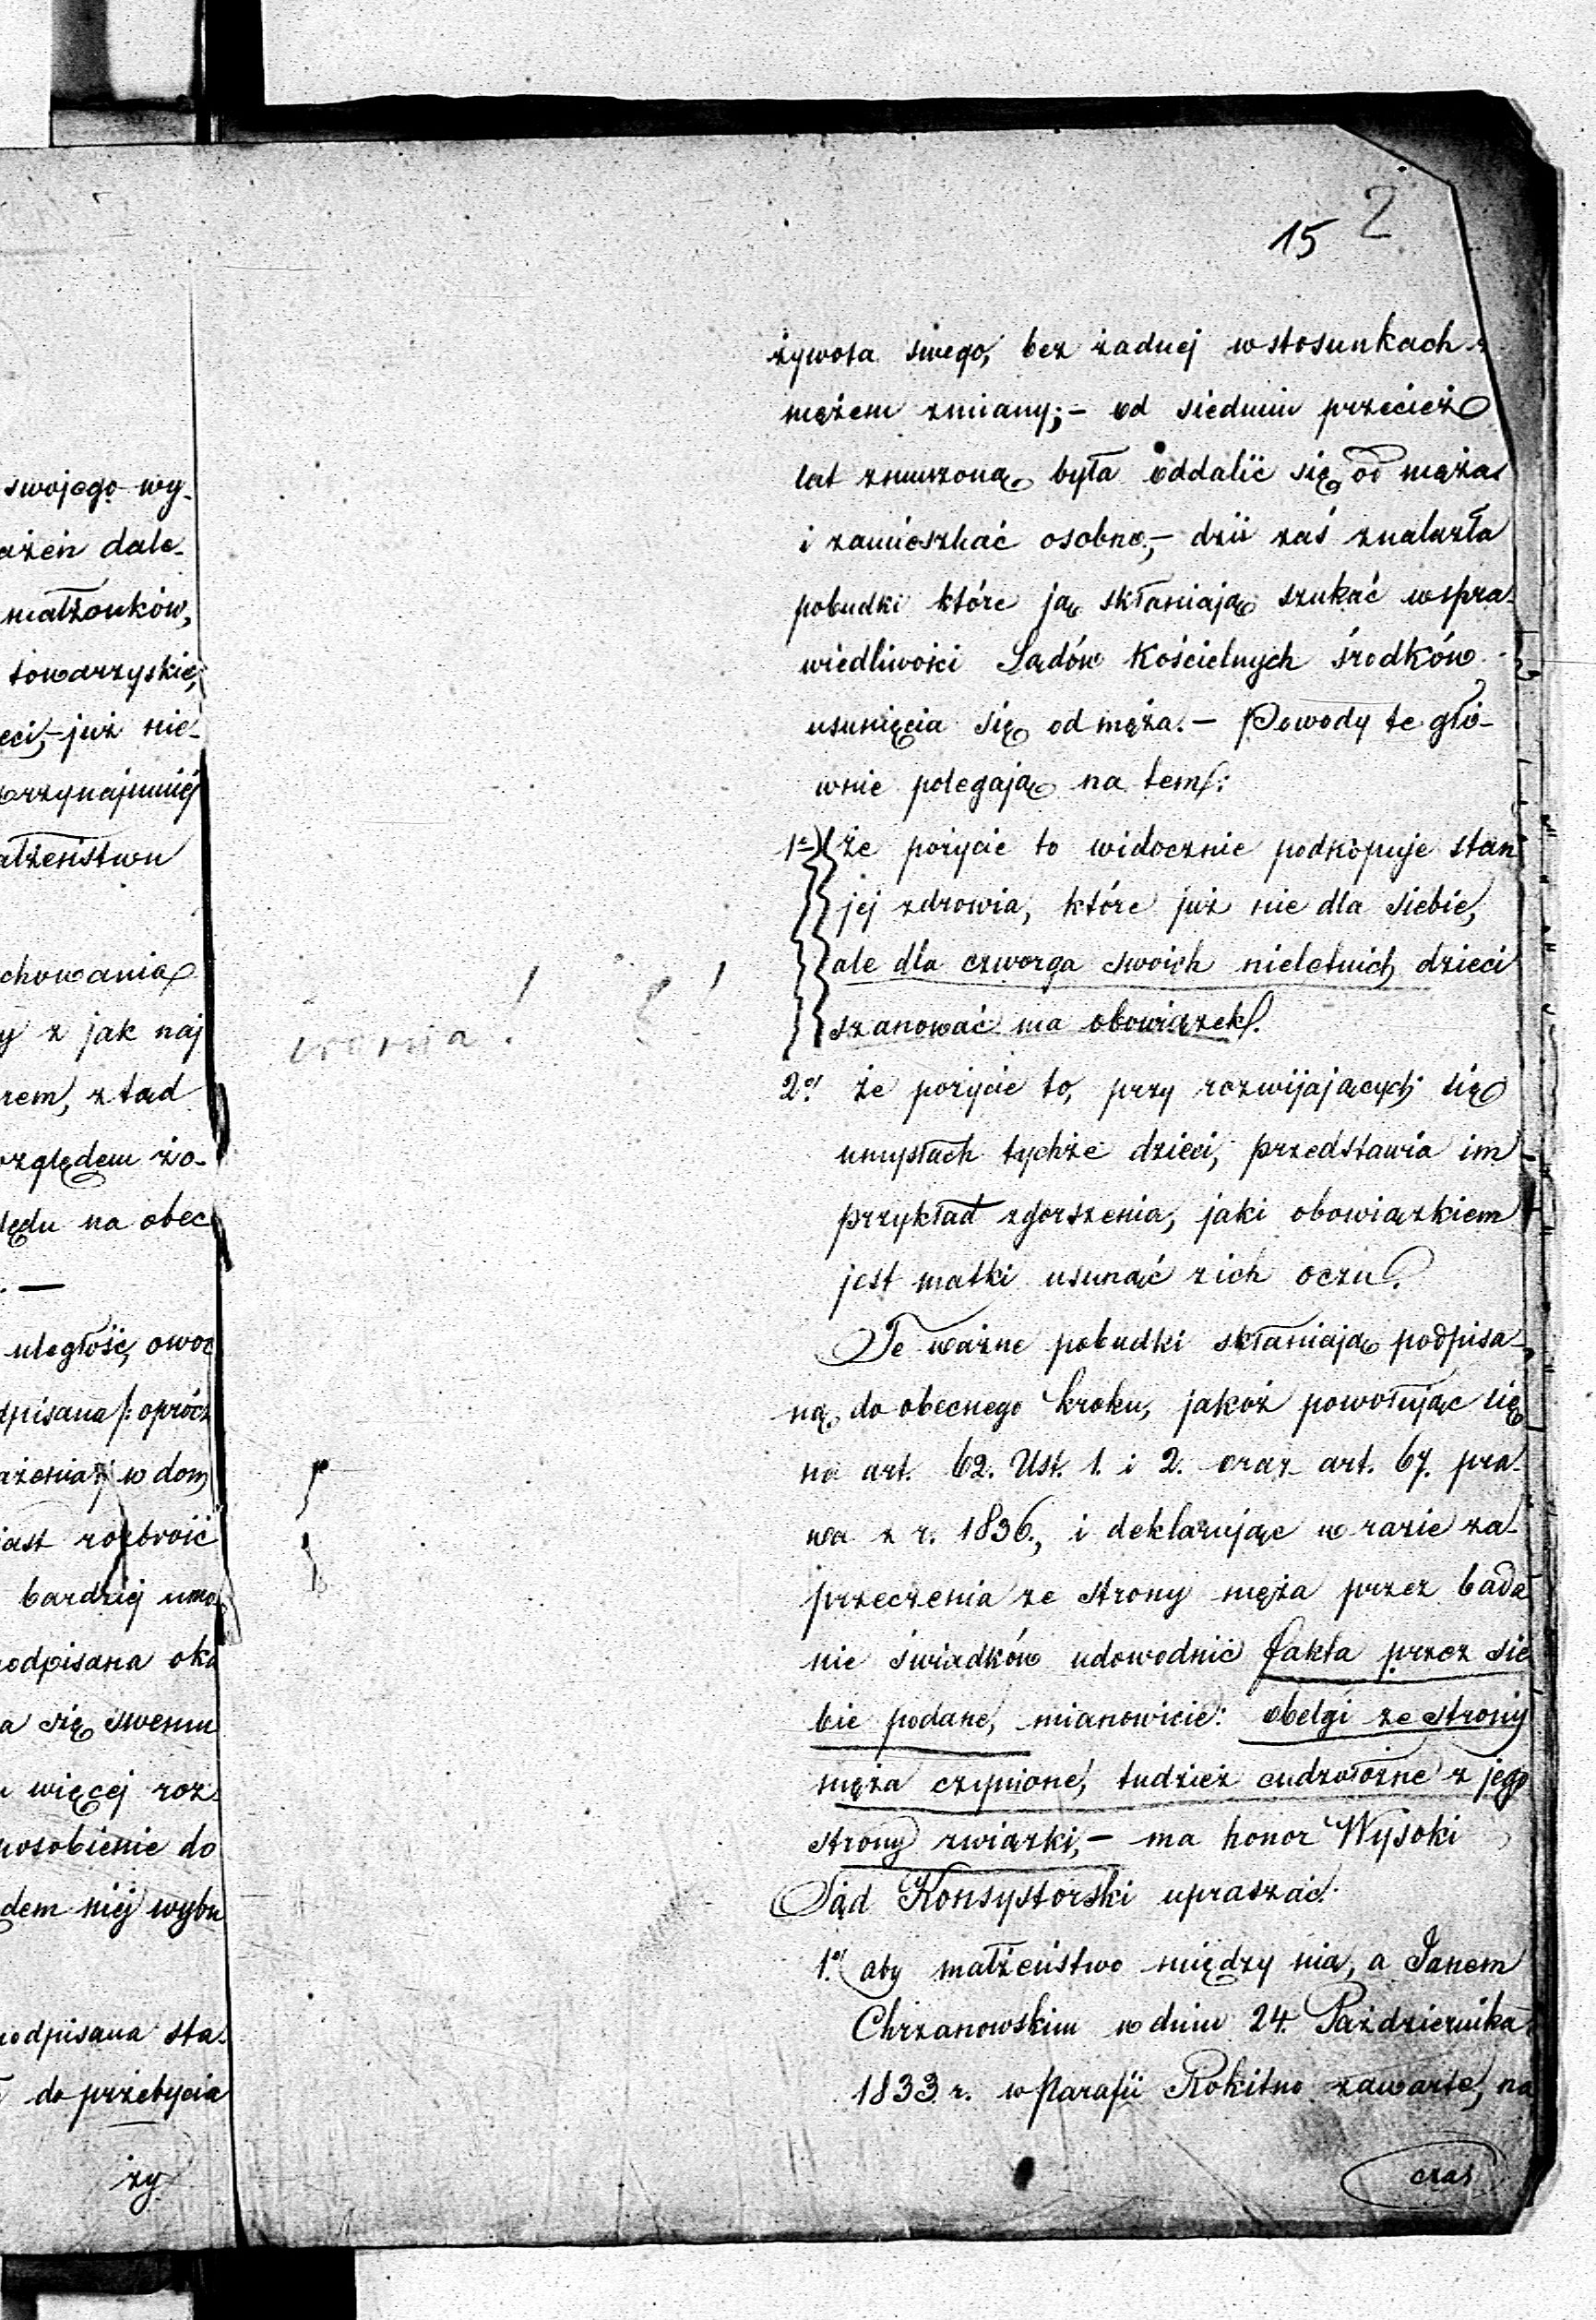 swojego wy-
ażeń dale-
małżonków,
towarzyskie,
eci,- już nie-
przynajmniej
ałżeństwu
chowania
y z jak naj
rem, z tąd
względem żo-
lędu na obec
. —
uległość, owoc
dpisana /: oprócz
ażenia :/ w dom
iast rozbroić
bardziej umo
odpisana oka
a się swemu
u więcej roz-
posobienie do
dem niéj wybu
odpisana sta-
do przebycia
ży
15 2
żywota swego, bez żadnej w stosunkach z
mężem zmiany;- od siedmiu przecież
lat zmuszoną była oddalić się od męża
i zamieszkać osobno,- dziś zaś znalazła
pobudki które ją skłaniają szukać w spra-
wiedliwości Sądów Kościelnych środków
usunięcia się od męża.- Powody te głó-
wnie polegają na tem:
1e że pożycie to widocznie podkopuje stan
jej zdrowia, które już nie dla siebie,
ale dla czworga swoich nieletnich dzieci
szanować ma obowiązek.
2e że pożycie to, przy rozwijających się
umysłach tychże dzieci, przedstawia im
przykład zgorszenia, jaki obowiązkiem
jest matki usunąć z ich oczu.
Te ważne pobudki skłaniają podpisa-
ną do obecnego kroku, jakoż powołując się
na art. 62. Ust. 1. i 2. oraz art. 67. pra-
wa z r. 1836., i deklarując w razie za-
przeczenia ze strony męża przez bada
nie świadków udowodnić fakta przez sie
bie podane, mianowicie: obelgi ze strony
męża czynione, tudzież cudzołożne z jego
strony związki,- ma honor Wysoki
Sąd Konsystorski upraszać:
1e aby małżeństwo między nią, a Janem
Chrzanowskim w dniu 24. Października
1833 r. w Parafii Rokitno zawarte, na
czas